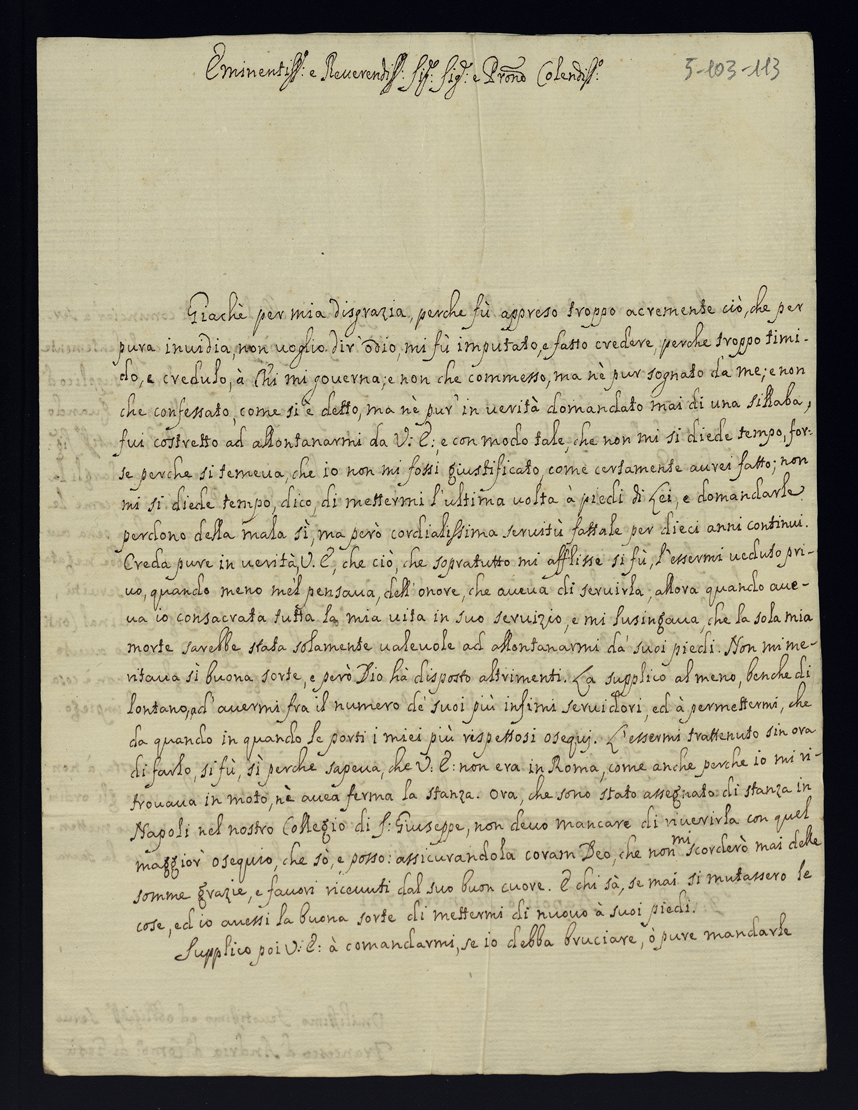 Eminentiss.º e Reverendiss.º Sig.r Sig.r e Pròne Colendiss.º
5-103-113
Giachè per mia disgrazia, perche fù appreso troppo acremente ciò, che per
pura invidia, non voglio dir' odio, mi fù imputato, e fatto credere, perche troppo timi-
do, e credulo, à Chi mi governa; e non che commesso, ma nè pur sognato da me; e non
che confessato, come si è detto, ma nè pur' in verità domandato mai di una sillaba,
fui costretto ad allontanarmi da V: E:; e con modo tale, che non mi si diede tempo, for-
se perche si temeva, che io non mi fossi giustificato, come certamente aurei fatto; non
mi si diede tempo, dico, di mettermi l'ultima volta à piedi di Lei, e domandarle
perdono della mala sì, ma però cordialissima servitù fattale per dieci anni continui.
Creda pure in verità, V: E, che ciò, che sopratutto mi afflisse si fù, l'essermi veduto pri-
vo, quando meno mel pensava, dell'onore, che aveva di servirla, allora quando ave-
va io consacrata tutta la mia vita in suo servizio, e mi lusingava, che la sola mia
morte sarebbe stata solamente valevole ad allontanarmi da' suoi piedi. Non mi me-
ritava sì buona sorte, e però Dio hà disposto altrimenti. La supplico al meno, benche di
lontano, ad' avermi fra il numero de' suoi più infimi servidori, ed à permettermi, che
da quando in quando le porti i miei più rispettosi ossequj. L'essermi trattenuto sin ora
di farlo, si fù, sì perche sapeva, che V: E: non era in Roma, come anche perche io mi ri-
trovava in moto, nè avea ferma la stanza. Ora, che sono stato assegnato di stanza in
Napoli nel nostro Collegio di S: Giuseppe, non devo mancare di riverirla con quel
maggior' osequio, che sò, e posso: assicurandola coram Deo, che non mi scorderò mai delle
somme grazie, e favori ricevuti dal suo buon cuore. E chi sà, se mai si mutassero le
cose, ed io avessi la buona sorte di mettermi di nuovo à suoi piedi.
Supplico poi V: E: à comandarmi, se io debba bruciare, ò pure mandarle